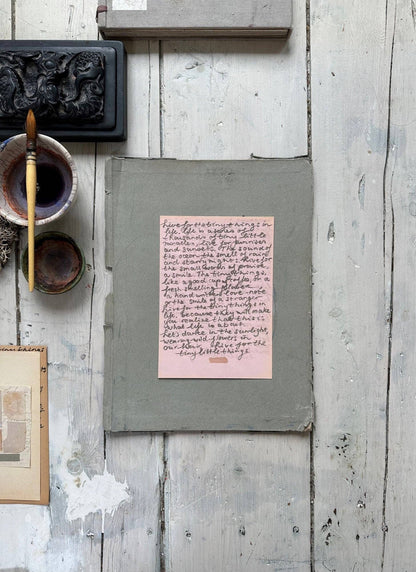 Live for the tiny things in
life. life is a series of
thousands of tiny little
miracles, live for sunrises
and sunsets, the sound of
the ocean, the smell of rain
and starry nights. Live for
the small words that provide
a smile. The tiny things,
like a good cup of coffee, or a
fresh smelling flower.
a hand written love-note
or the smile of a stranger.
Live for the tiny things in
life, because they will make
you realise that this is
what life is about.
Let's dance in the sunlight,
wearing wild flowers in
our hair Live for the
tiny little things